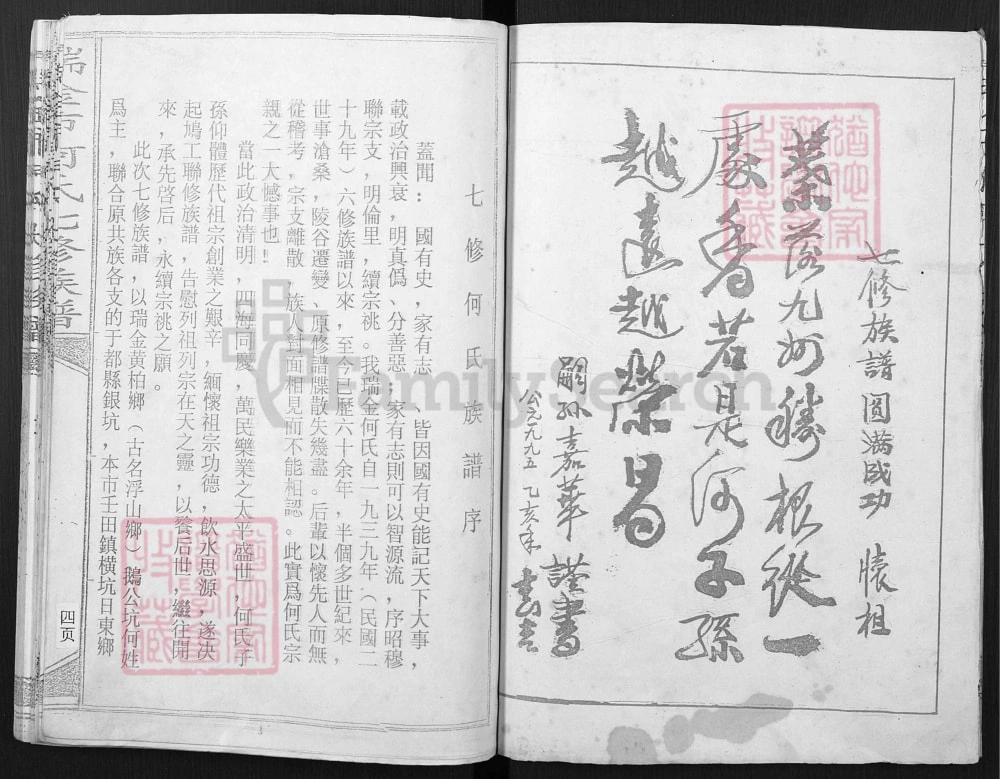 七修族譜圓滿成功 懐祖
葉落九州勝根從一
處看若是何子孫
越遠越榮昌
嗣孫嘉華謹書
公元一九九五 乙亥年
七修何氏族譜序
蓋聞：國有史，家有志，皆因國有史能記天下大事，
載政治興衰，明真僞、分善惡；家有志則可以智源流，序昭穆
聯宗支，明倫里，續宗祧。我瑞金何氏自一九三九年（民國二
十九年）六修族譜以來，至今已歷六十余年，半個多世紀來，
世事滄桑，陵谷遷變、原修譜牒散失幾盡。后輩以懷先人而無
從稽考，宗支離散，族人對面相見而不能相認。此實爲何氏宗
親之一大憾事也！
當此政治清明，四海同慶，萬民樂業之太平盛世，何氏子
孫仰體歷代祖宗創業之艱辛，緬懷祖宗功德，飲水思源，遂决
起鳩工聯修族譜，告慰列祖列宗在天之靈，以餈后世，繼往開
來，承先啓后，永續宗祧之願。
此次七修族譜，以瑞金黄柏鄉（古名浮山鄉）鵝公坑何姓
爲主，聯合原共族各支的于都縣銀坑，本市壬田鎮横坑日東鄉
四页
瑞金何氏七修族譜
FamilySearch